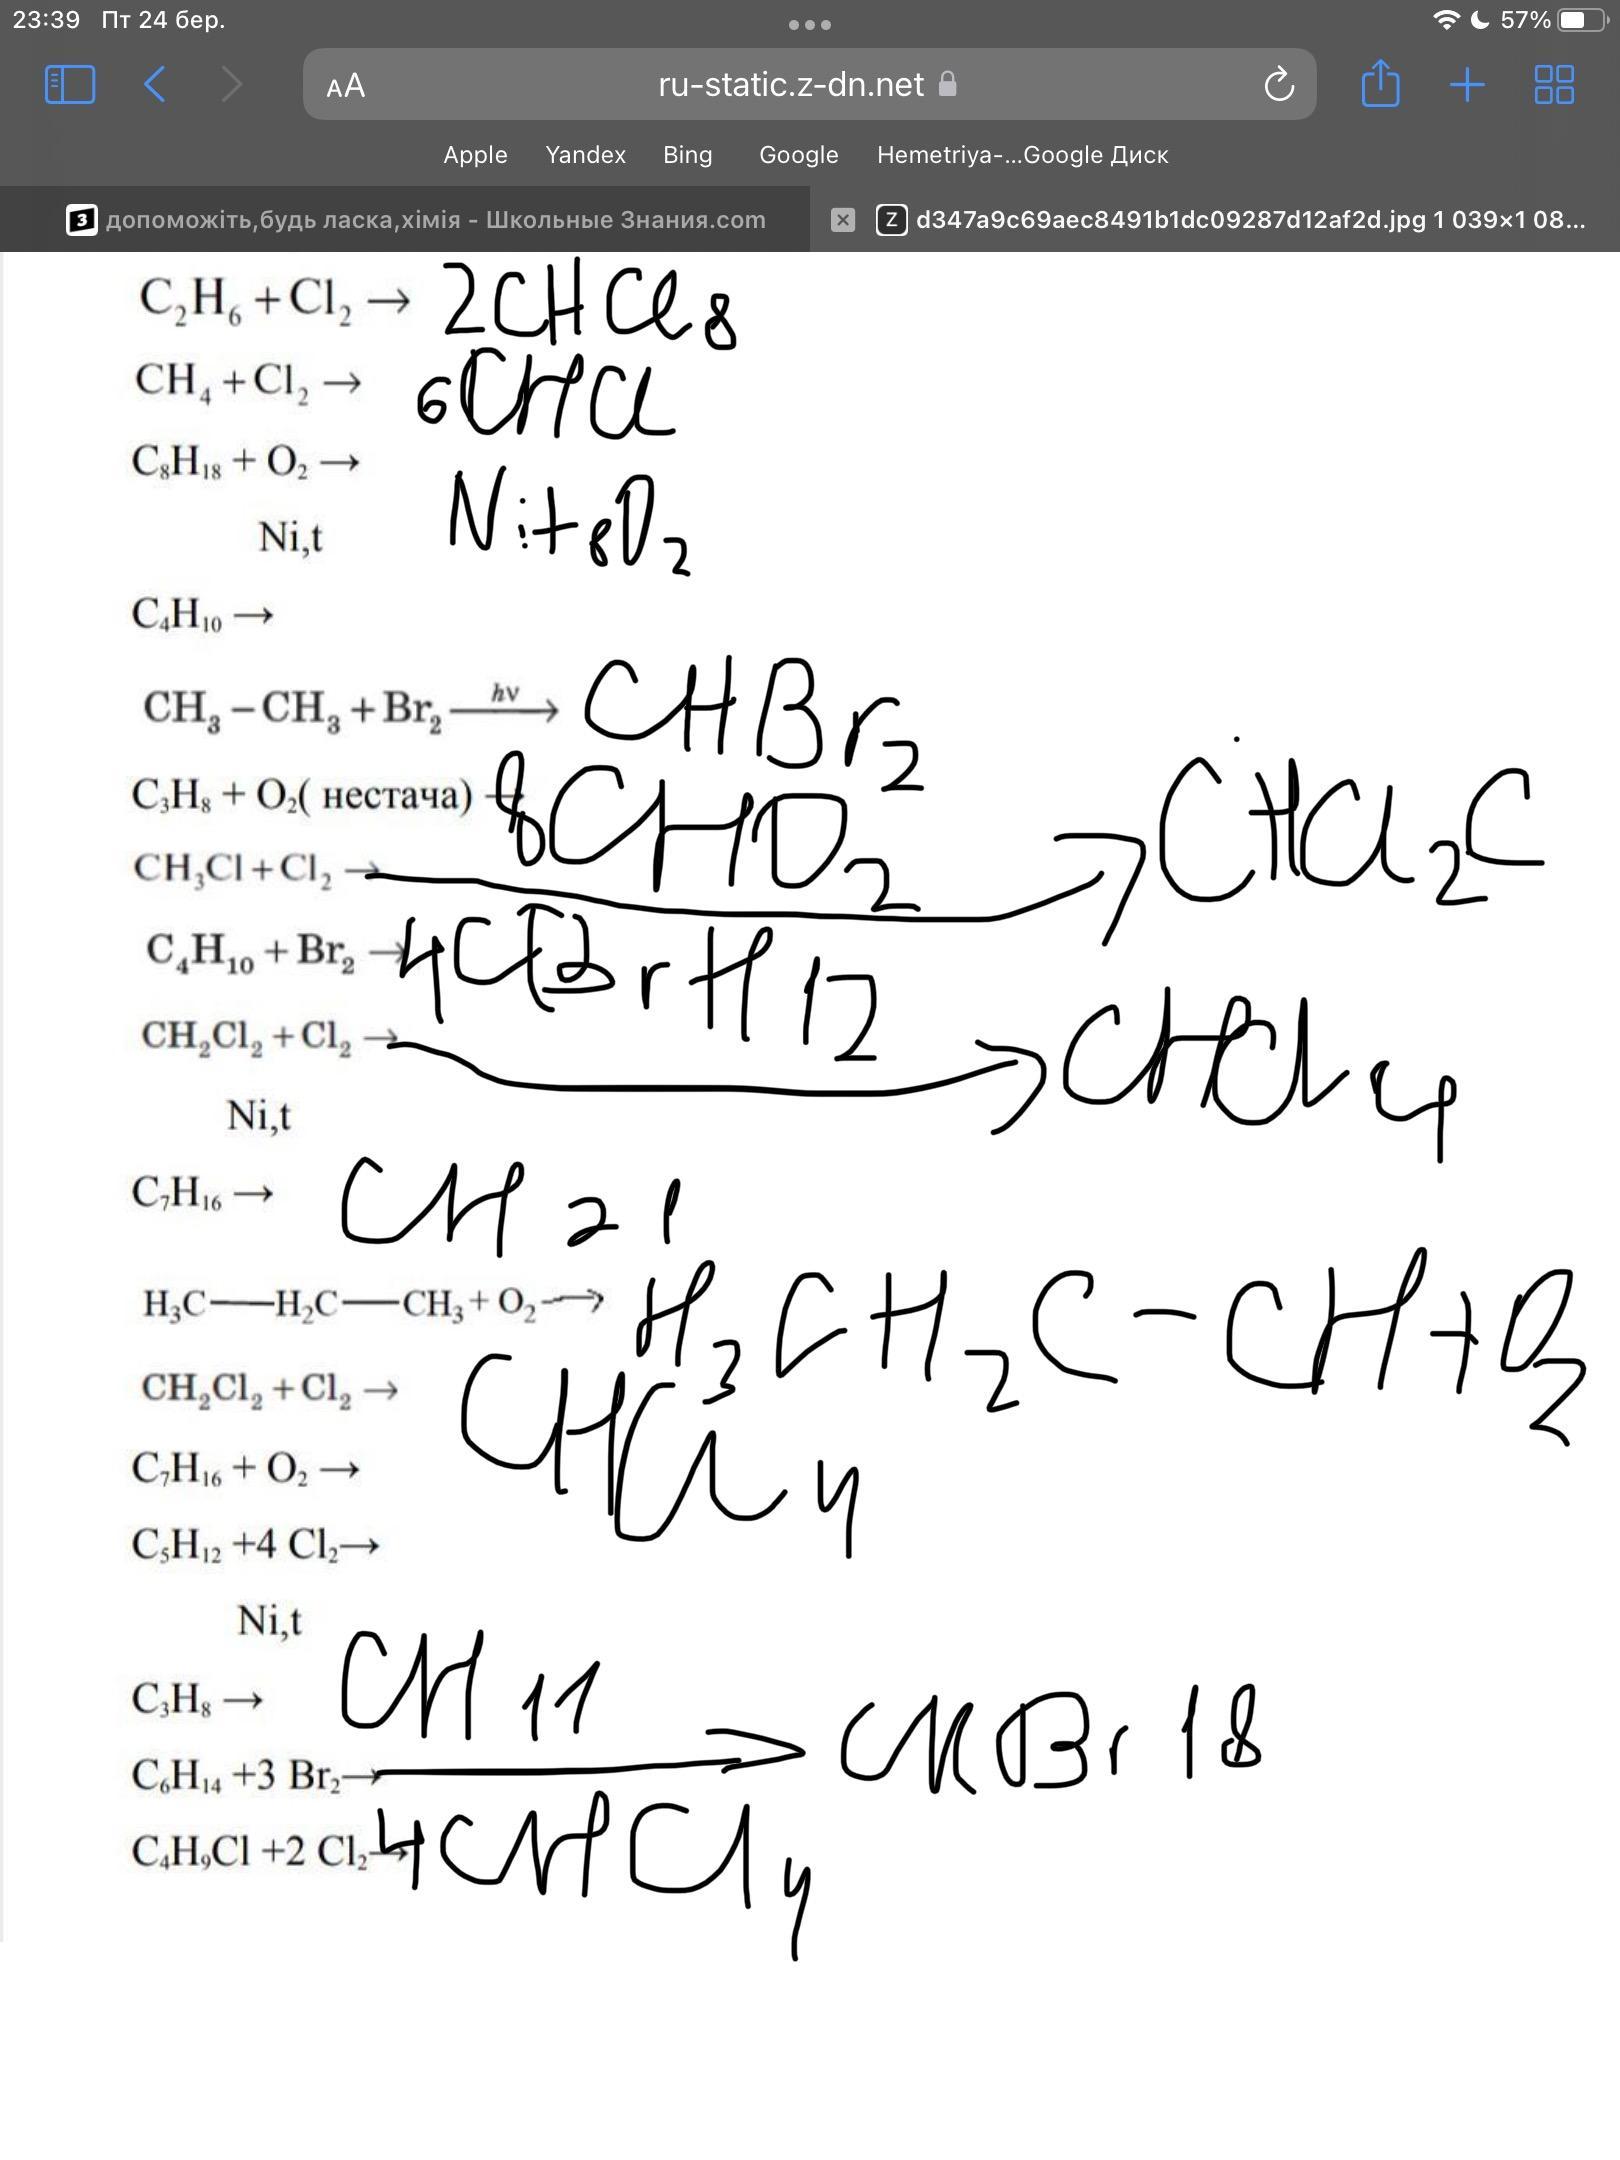 23:39 Пт 24 бер.
57%
AA ru-static.z-dn.net
Apple Yandex Bing Google Hemetriya-...Google Диск
З допоможіть,будь ласка,хімія - Школьные Знания.com
Z d347a9c69aec8491b1dc09287d12af2d.jpg 1 039×1 08...
C₂H₆ + Cl₂ → 2CHCl₈
CH₄ + Cl₂ → 6CHCl
C₈H₁₈ + O₂ →
Ni,t Nit₈O₂
C₄H₁₀ →
CH₃ – CH₃ + Br₂ hν → CHBr₂
C₃H₈ + O₂( нестача) → 8CHO₂
CH₃Cl + Cl₂ → CHCl₂C
C₄H₁₀ + Br₂ → 4CBrH12
CH₂Cl₂ + Cl₂ → CHCl₄
Ni,t
C₇H₁₆ → CH 21
H₃C—H₂C—CH₃ + O₂ → H₃CH₂C–CH+O₂
CH₂Cl₂ + Cl₂ → CHCl₄
C₇H₁₆ + O₂ →
C₅H₁₂ +4 Cl₂→
Ni,t
C₃H₈ → CH 11
C₆H₁₄ +3 Br₂→ CHBr 18
C₄H₉Cl +2 Cl₂→ 4CHCl₄